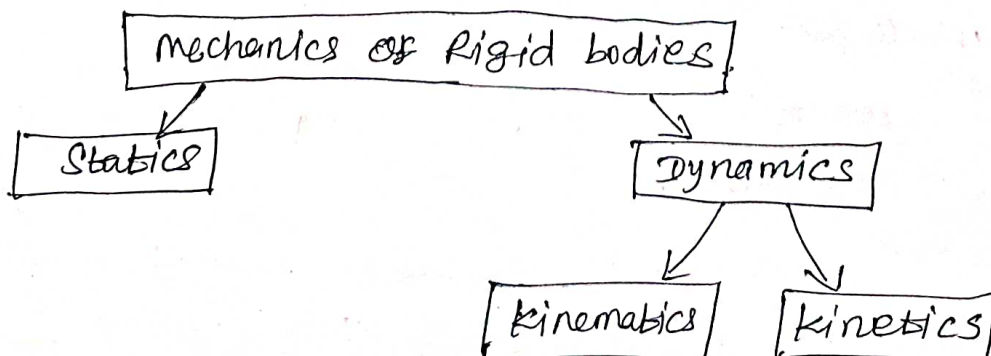 Mechanics of Rigid bodies
Statics
Dynamics
Kinematics
Kinetics